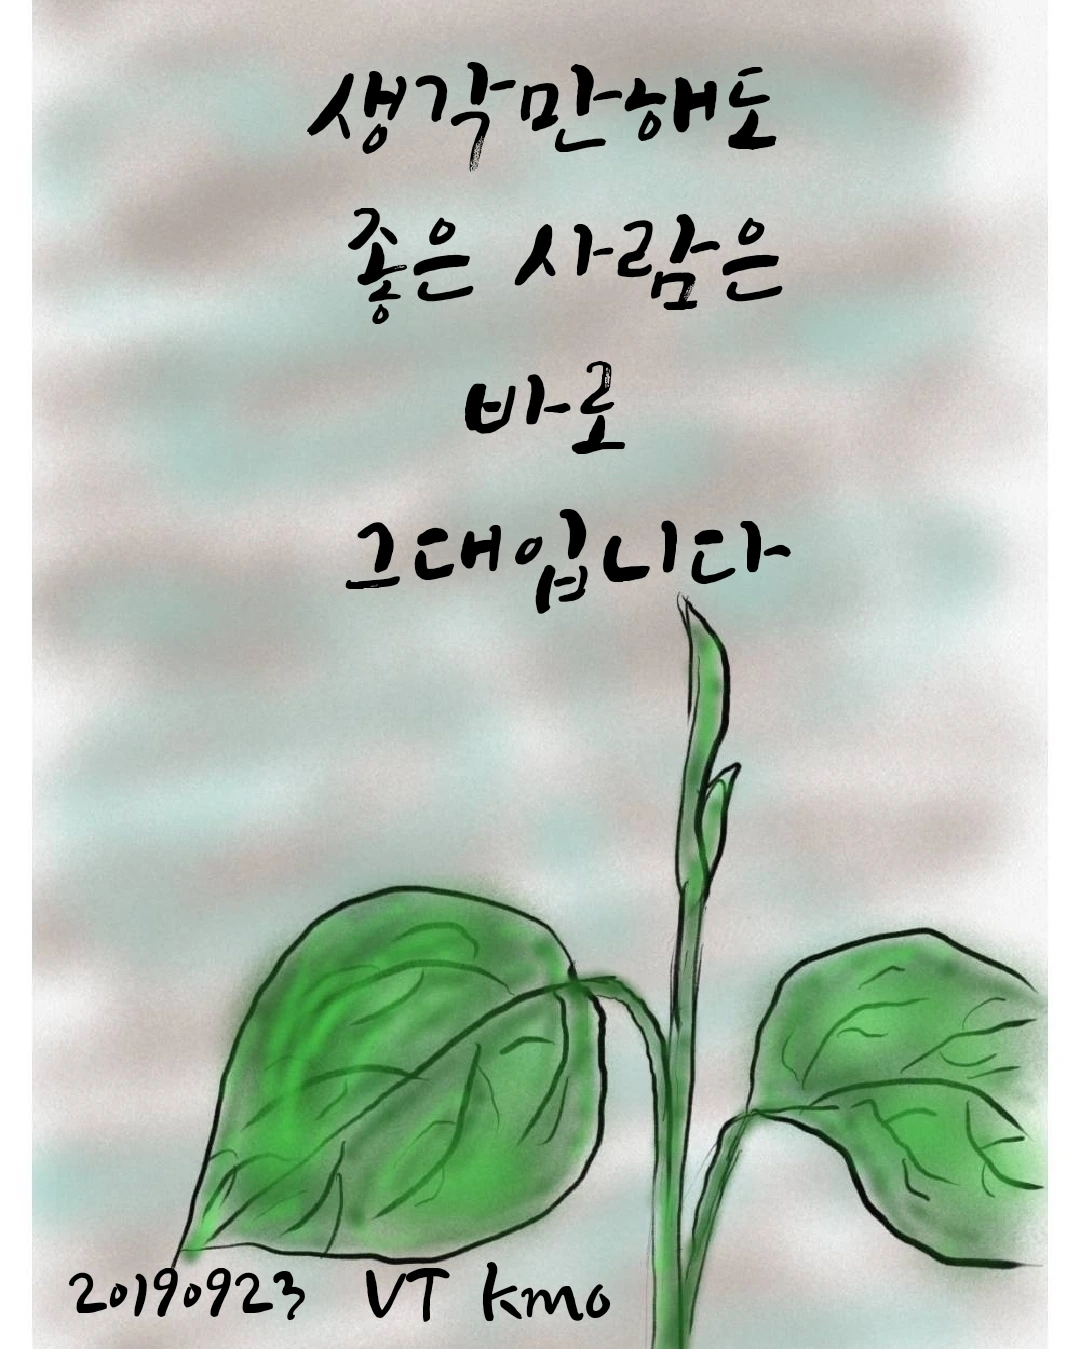 생각만해도
좋은 사람은
바로
그대입니다
20190923 VT kmo